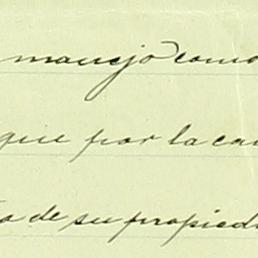 manejo como
que por la ca
de su propied